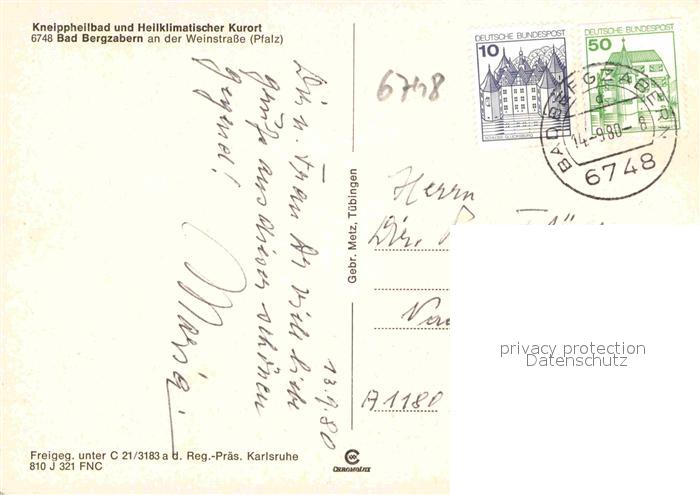 Kneippheilbad und Heilklimatischer Kurort
6748 Bad Bergzabern an der Weinstraße (Pfalz)
6748
DEUTSCHE BUNDESPOST
10
SCHLOSS GLÜCKSBURG
DEUTSCHE BUNDESPOST
50
BAD BERGZABERN
14.-9.80-8
6748
13.9.80
Dir u. Frau
viele liebe
grüße aus dieser schönen
Gegend!
Maria.
Gebr. Metz, Tübingen
Herrn
Dir.
A 1180
privacy protection
Datenschutz
Freigeg. unter C 21/3183 a d. Reg.-Präs. Karlsruhe
810 J 321 FNC
CHROMOLUX